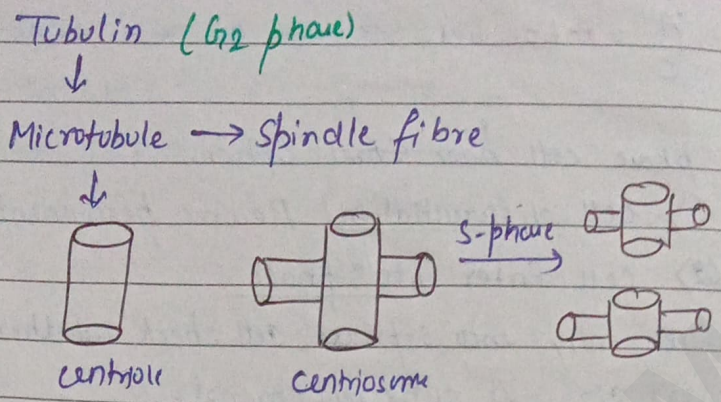 Tubulin (G2 phase)
↓
Microtobule → Spindle fibre
↓
S-phase
centriole centriosome